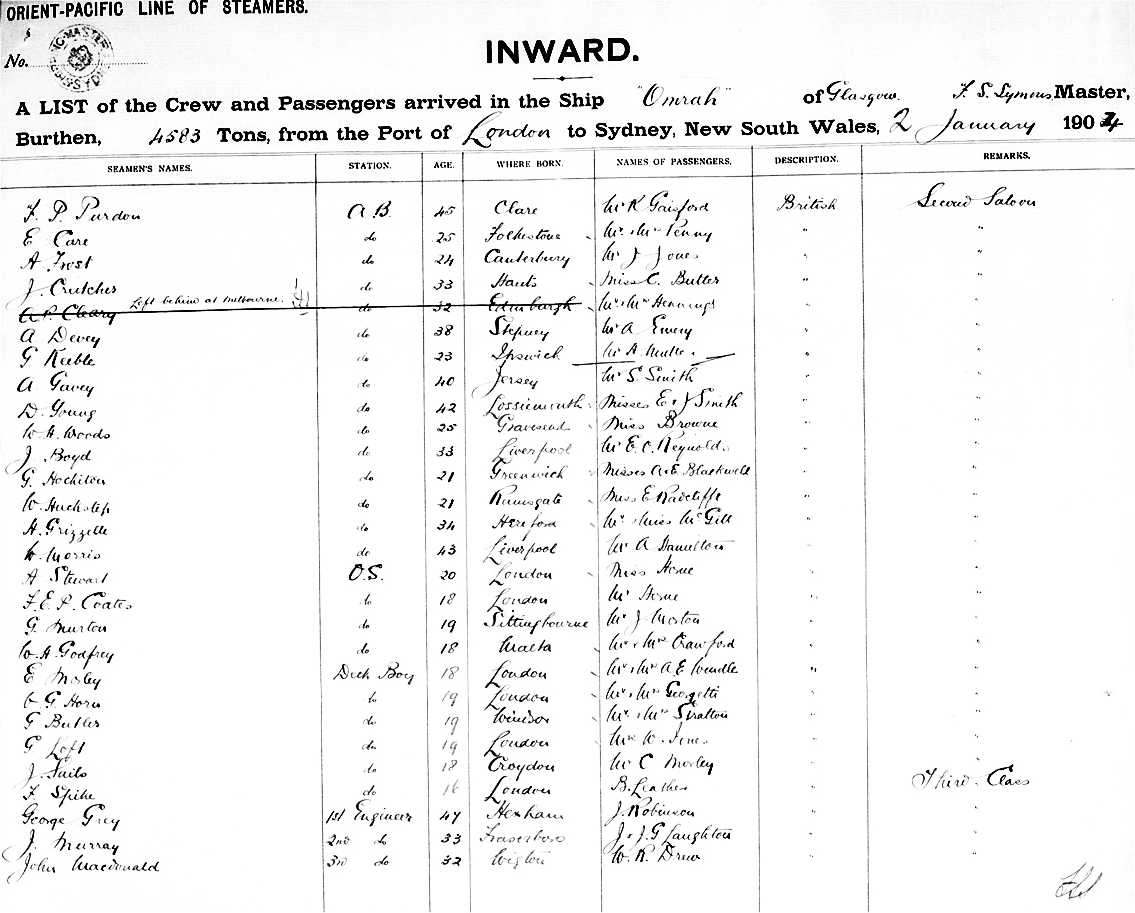 ORIENT-PACIFIC LINE OF STEAMERS.
No.
INWARD.
A LIST of the Crew and Passengers arrived in the Ship "Omrah" of Glasgow. F. S. Symons, Master,
Burthen, 4583 Tons, from the Port of London to Sydney, New South Wales, 2 January 1904
SEAMEN'S NAMES. STATION. AGE. WHERE BORN. NAMES OF PASSENGERS. DESCRIPTION. REMARKS.
F. P. Purdon A.B. 45 Clare Mr K Gaisford British Second Saloon
E Care do 25 Folkestone Mr & Mrs Penny " "
A Frost do 24 Canterbury Mr J Jones " "
J. Crutcher do 33 Hants Miss C. Butler " "
A P. Cleary Left behind at Melbourne. do 32 Edinburgh Mr & Mrs Hennings " "
A Devey do 38 Stepney Mr A Emery " "
G. Keeble do 23 Ipswich Mr A " "
A Gavey do 40 Jersey Mr S. Smith " "
D. Young do 42 Lossiemouth Misses E & J Smith " "
W. H. Woods do 25 Gravesend Miss Browne " "
J. Boyd do 33 Liverpool Mr E. C. Reynolds " "
G. do 21 Greenwich Misses A & E Blackwell " "
W. Huckstep do 21 Ramsgate Miss E Radcliffe " "
H. Grizzelle do 34 Hereford Mr & Miss McGill " "
W. Morris do 43 Liverpool Mr A Hamilton " "
A Stewart O.S. 20 London Miss Horne " "
F. E. P. Coates do 18 London Mr Horne " "
G. Murton do 19 Sittingbourne Mr J Morton " "
W. H. Godfrey do 18 Malta Mr & Mrs Crawford " "
E Morley Deck Boy 18 London Mr & Mrs A E Windle " "
G Horn do 19 London Mr & Mrs Georgetti " "
G Butler do 19 Windsor Mr & Mrs Stratton " "
G Loft do 19 London W. Jones " "
J. do 18 Croydon Mr C Morley " "
F Spike do 16 London B. Leathes " Third Class
George Grey 1st Engineer 47 Hexham J. Robinson " "
J. Murray 2nd do 33 J & J. G Laughton " "
John Macdonald 3rd do 32 Wigton W. R. Drew " "